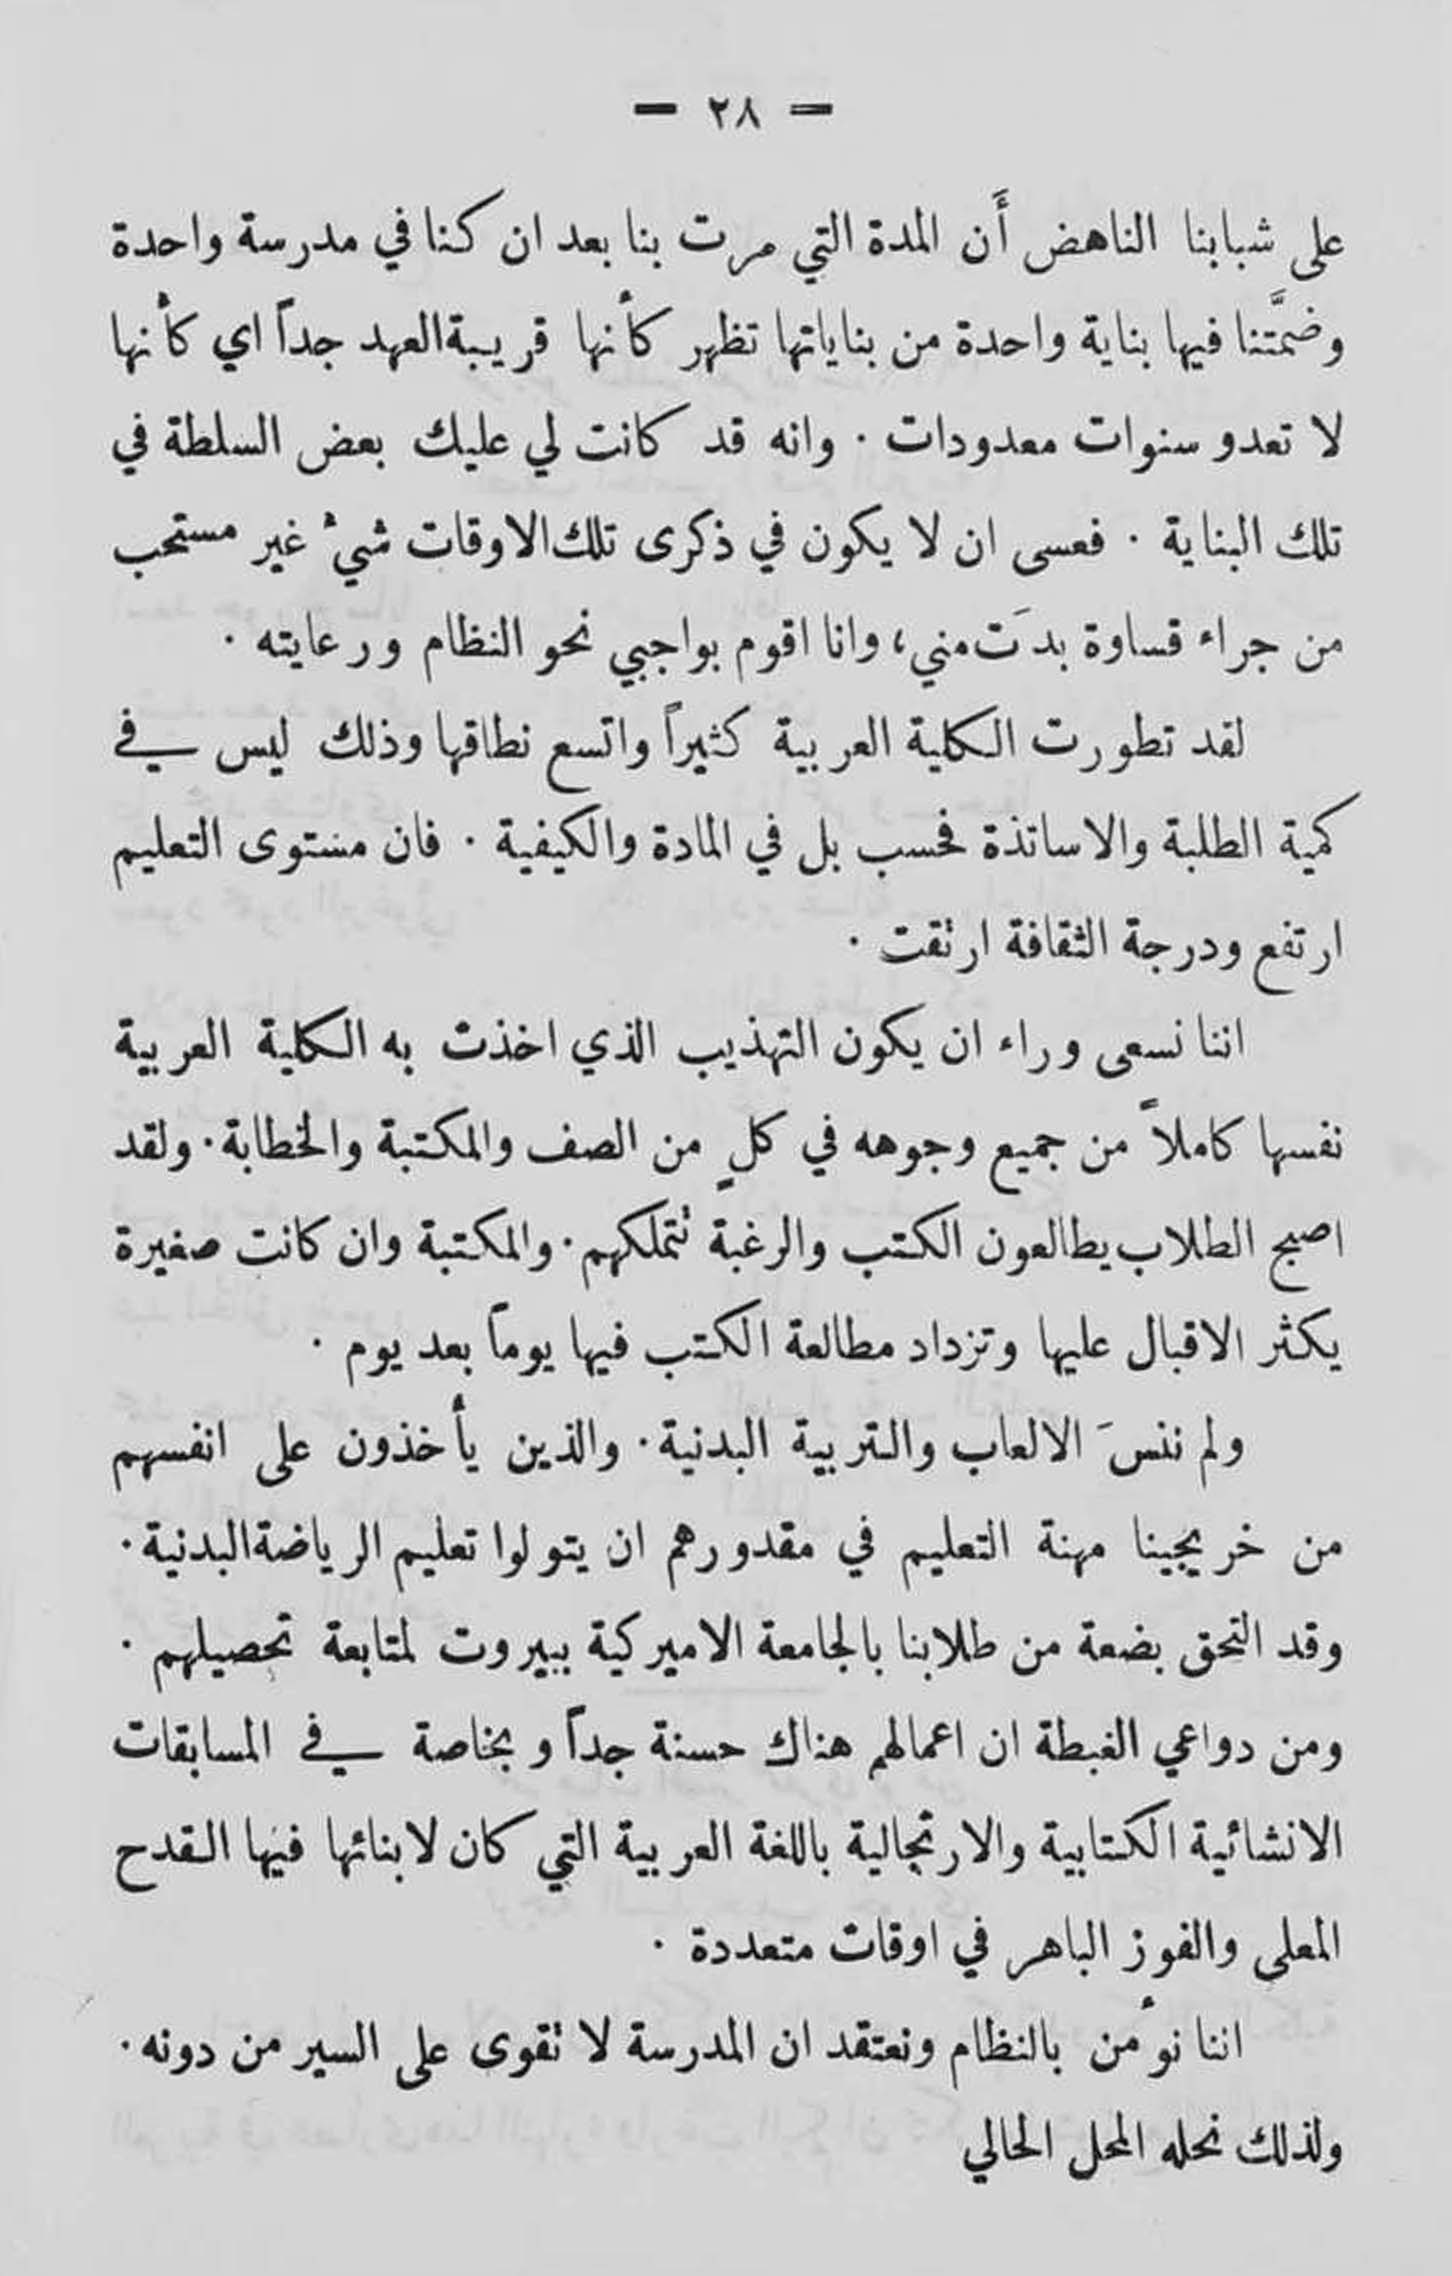 — ٢٨ —
على شبابنا الناهض أَن المدة التي مرت بنا بعد ان كنا في مدرسة واحدة
وضمَّتنا فيها بناية واحدة من بناياتها تظهر كأنها قريبة العهد جداً اي كأنها
لا تعدو سنوات معدودات . وانه قد كانت لي عليك بعض السلطة في
تلك البناية . فعسى ان لا يكون في ذكرى تلك الاوقات شيءٌ غير مستحب
من جراء قساوة بدَت مني، وانا اقوم بواجبي نحو النظام ورعايته .
لقد تطورت الكلية العربية كثيراً واتسع نطاقها وذلك ليس في
كمية الطلبة والاساتذة فحسب بل في المادة والكيفية . فان مستوى التعليم
ارتفع ودرجة الثقافة ارتقت .
اننا نسعى وراء ان يكون التهذيب الذي اخذت به الكلية العربية
نفسها كاملاً من جميع وجوهه في كلٍ من الصف والمكتبة والخطابة . ولقد
اصبح الطلاب يطالعون الكتب والرغبة تتملكهم . والمكتبة وان كانت صغيرة
يكثر الاقبال عليها وتزداد مطالعة الكتب فيها يوماً بعد يوم .
ولم ننسَ الالعاب والتربية البدنية . والذين يأخذون على انفسهم
من خريجينا مهنة التعليم في مقدورهم ان يتولوا تعليم الرياضة البدنية .
وقد التحق بضعة من طلابنا بالجامعة الاميركية ببيروت لمتابعة تحصيلهم .
ومن دواعي الغبطة ان اعمالهم هناك حسنة جداً وبخاصة في المسابقات
الانشائية الكتابية والارتجالية باللغة العربية التي كان لابنائها فيها القدح
المعلى والفوز الباهر في اوقات متعددة .
اننا نؤمن بالنظام ونعتقد ان المدرسة لا تقوى على السير من دونه .
ولذلك نحله المحل الحالي